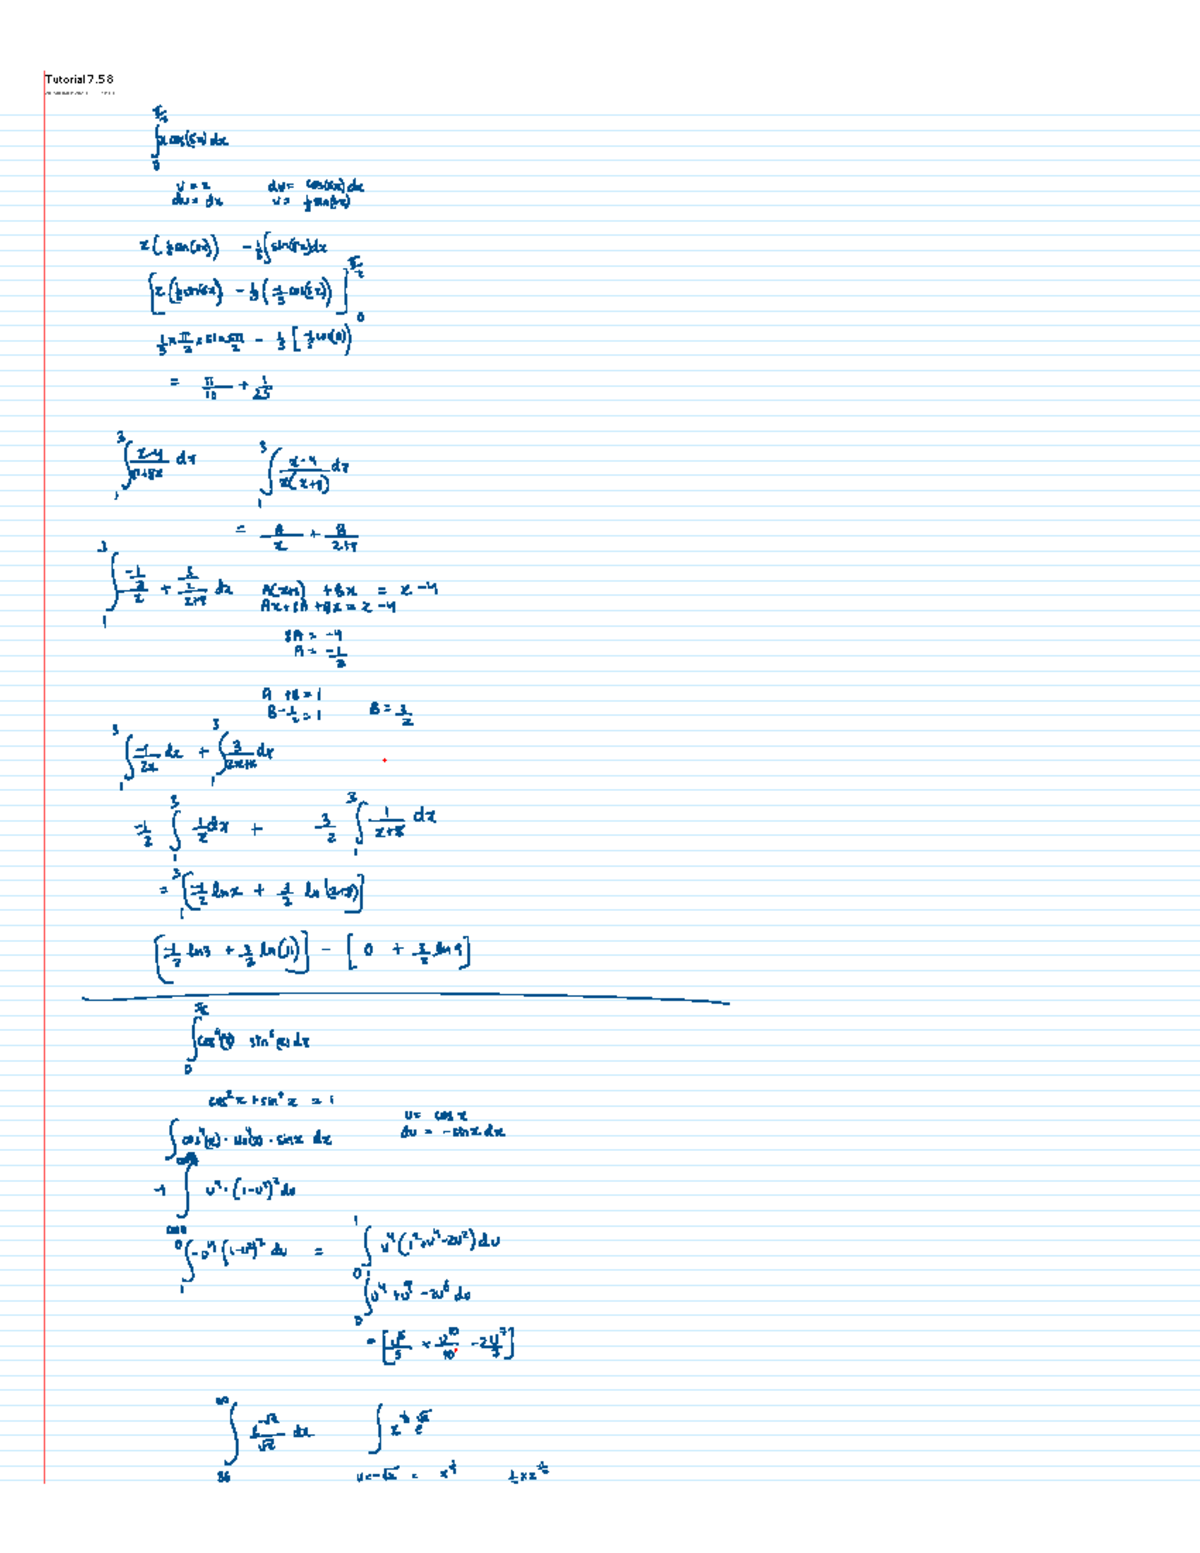 Tutorial 7.5 8
∫₀^{π/2} x cos(5x) dx
u = x    dv = cos(5x) dx
du = dx    v = 1/5 sin(5x)
x(1/5 sin(5x)) - 1/5 ∫ sin(5x) dx
[x(1/5 sin 5x) - 1/5(-1/5 cos(5x))]₀^{π/2}
1/5 × π/2 × sin 5π/2 - 1/5 [-1/5 cos(0)]
= π/10 + 1/25
∫₁³ (x-4)/(x²+8x) dx    ∫₁³ (x-4)/(x(x+8)) dx
= A/x + B/(x+8)
∫₁³ (-1/2)/x + (3/2)/(x+8) dx    A(x+8) + Bx = x - 4
Ax + 8A + Bx = x - 4
8A = -4
A = -1/2
A + B = 1
B - 1/2 = 1    B = 3/2
∫₁³ -1/2x dx + ∫₁³ 3/(2x+16) dx
-1/2 ∫₁³ 1/x dx + 3/2 ∫₁³ 1/(x+8) dx
= ³₁[-1/2 ln x + 3/2 ln(x+8)]
[-1/2 ln 3 + 3/2 ln(11)] - [0 + 3/2 ln 9]
cos²x + sin²x = 1
u = cos x
∫ cos⁴(x) · sin⁴(x) · sin x dx    du = -sin x dx
-1 ∫ u⁴ · (1-u²)² du
∫₁⁰ -u⁴ (1-u²)² du = ∫₀¹ u⁴ (1² + u⁴ - 2u²) du
∫₀¹ u⁴ + u⁸ - 2u⁶ du